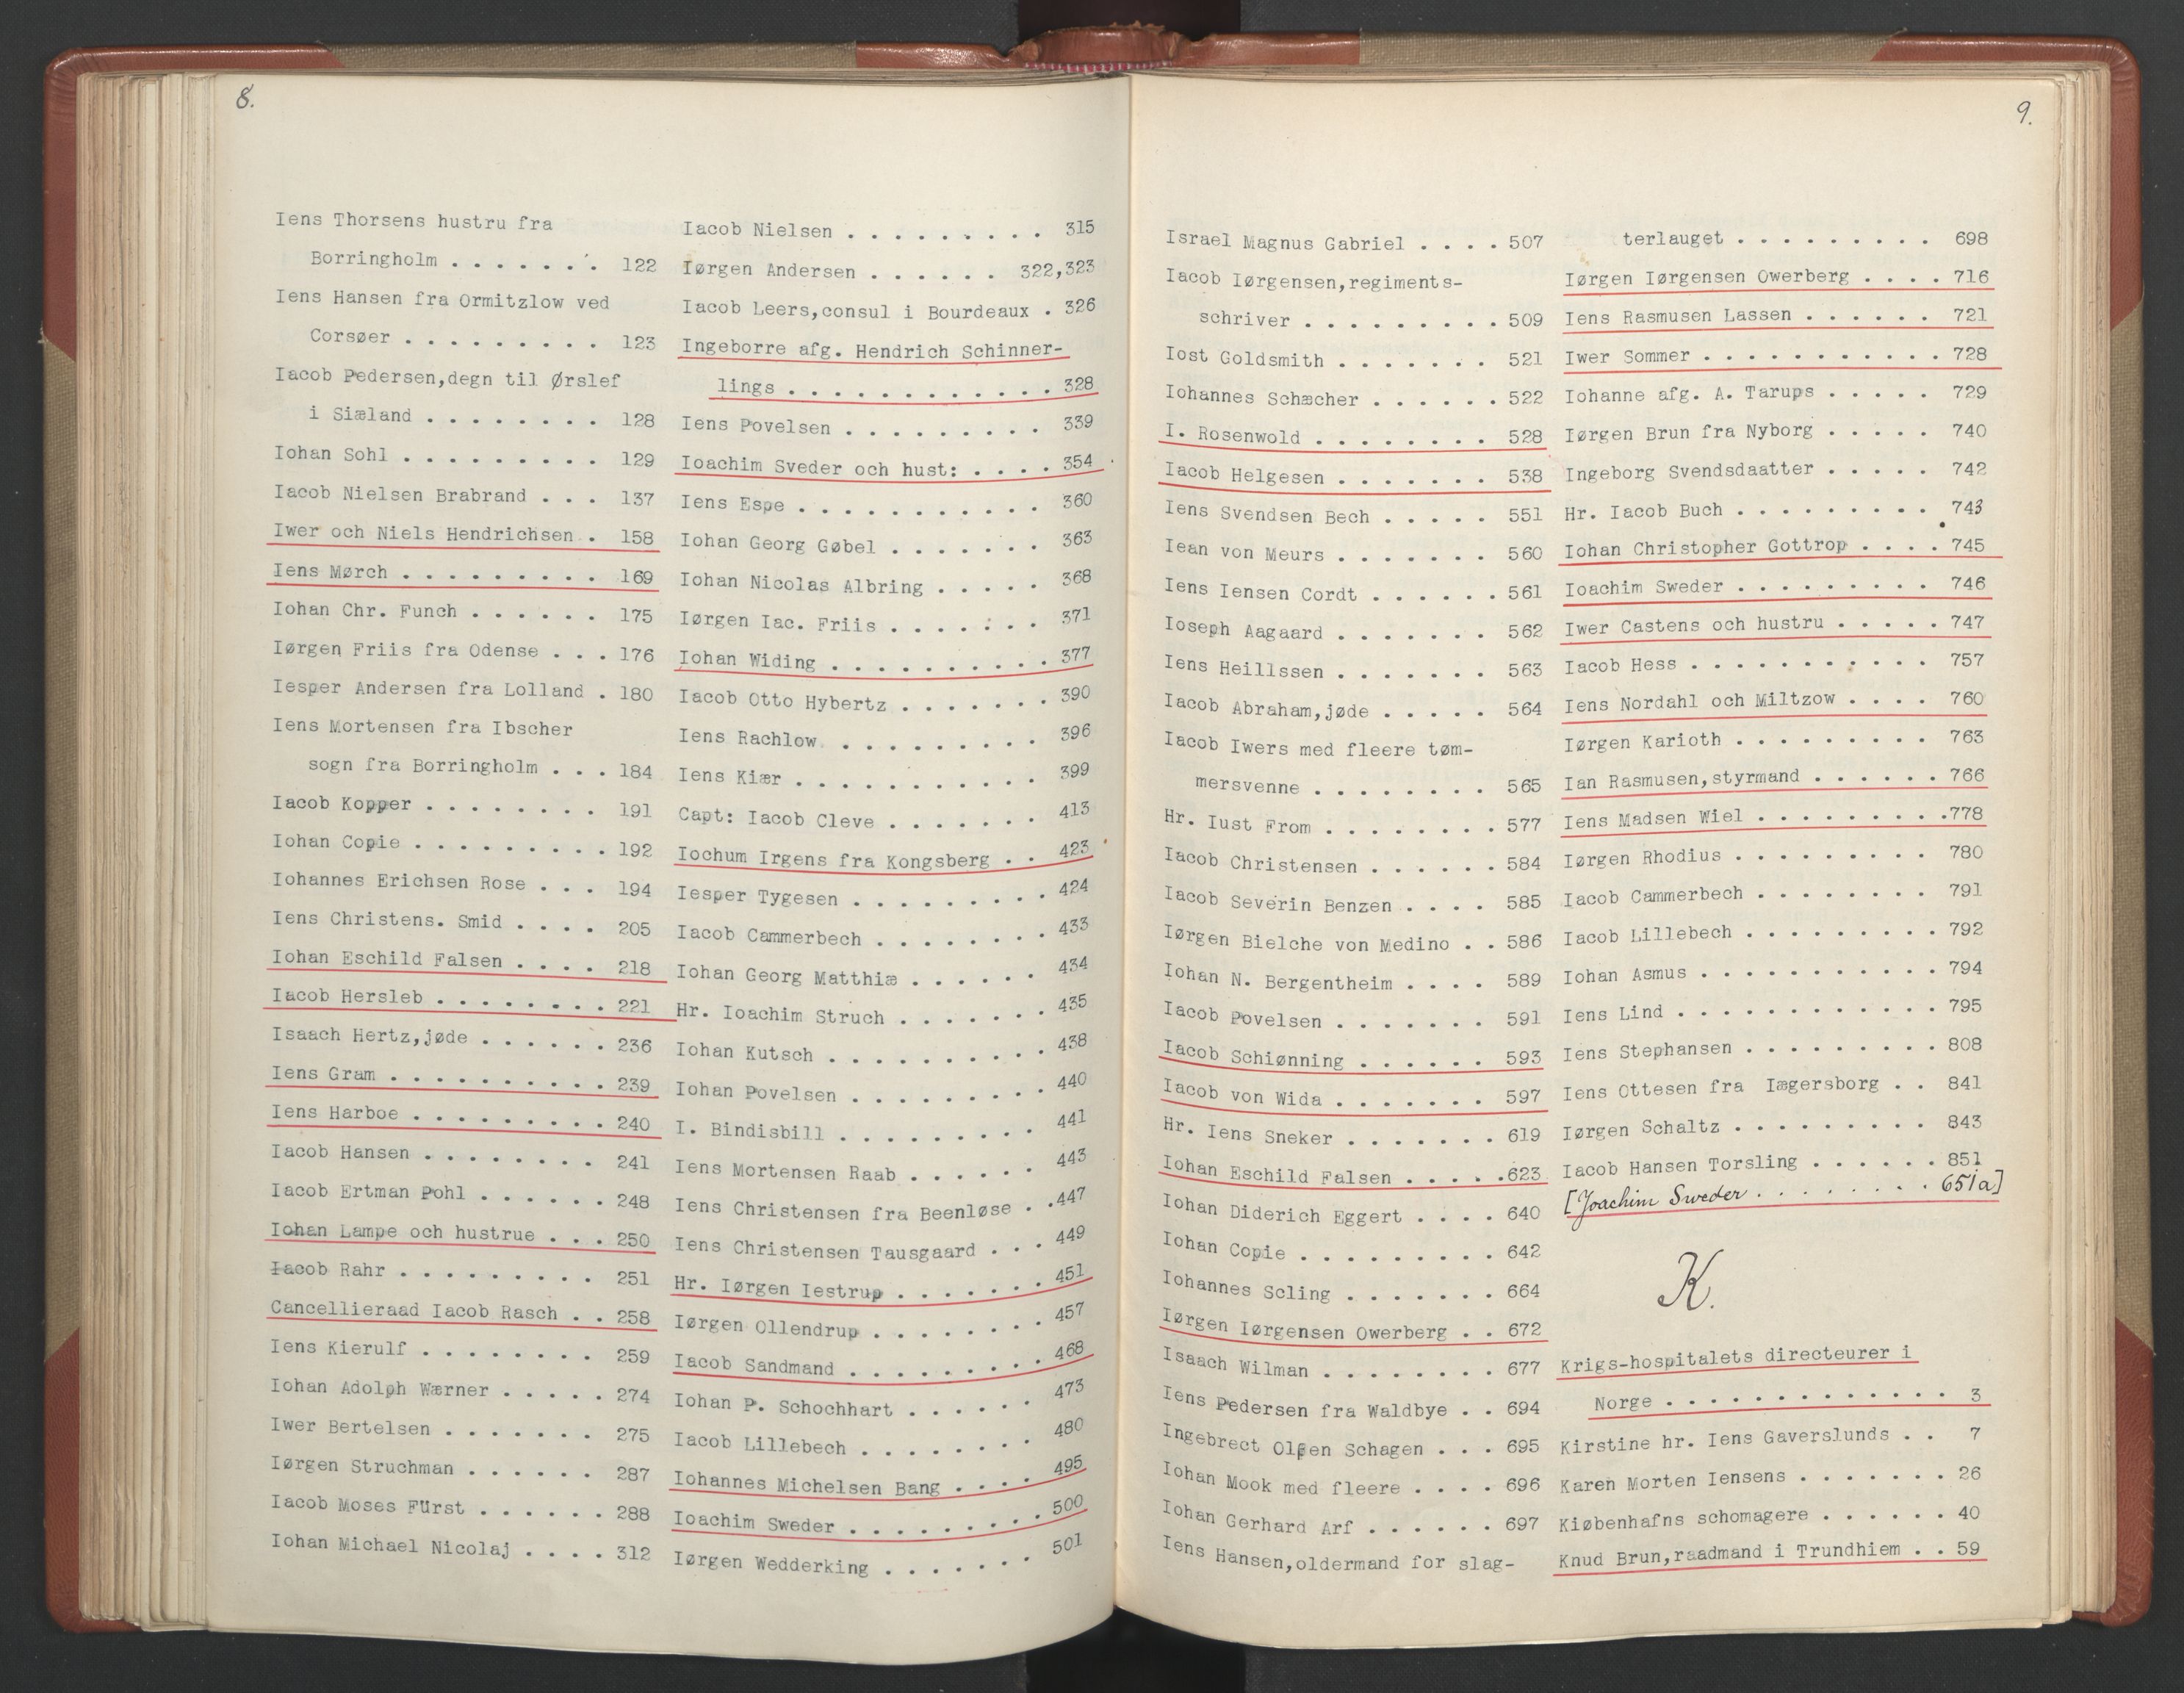 8.
Iens Thorsens hustru fra
Borringholm . . . . . . . 122
Iens Hansen fra Ormitzlow ved
Corsøer . . . . . . . . . 123
Iacob Pedersen,degn til Ørslef
i Siæland . . . . . . . . 128
Iohan Sohl . . . . . . . . . 129
Iacob Nielsen Brabrand . . . 137
Iwer och Niels Hendrichsen . 158
Iens Mørch . . . . . . . . . 169
Iohan Chr. Funch . . . . . . 175
Iørgen Friis fra Odense . . . 176
Iesper Andersen fra Lolland . 180
Iens Mortensen fra Ibscher
sogn fra Borringholm . . . 184
Iacob Kopper . . . . . . . . 191
Iohan Copie . . . . . . . . . 192
Iohannes Erichsen Rose . . . 194
Iens Christens. Smid . . . . 205
Iohan Eschild Falsen . . . . 218
Iacob Hersleb . . . . . . . . 221
Isaach Hertz,jøde . . . . . . 236
Iens Gram . . . . . . . . . . 239
Iens Harboe . . . . . . . . . 240
Iacob Hansen . . . . . . . . 241
Iacob Ertman Pohl . . . . . . 248
Iohan Lampe och hustrue . . . 250
Iacob Rahr . . . . . . . . . 251
Cancellieraad Iacob Rasch . . 258
Iens Kierulf . . . . . . . . 259
Iohan Adolph Wærner . . . . . 274
Iwer Bertelsen . . . . . . . 275
Iørgen Struchman . . . . . . 287
Iacob Moses Fürst . . . . . . 288
Iohan Michael Nicolaj . . . . 312
Iacob Nielsen . . . . . . . . . 315
Iørgen Andersen . . . . . . 322,323
Iacob Leers,consul i Bourdeaux . 326
Ingeborre afg. Hendrich Schinner-
lings . . . . . . . . . . . . 328
Iens Povelsen . . . . . . . . . 339
Ioachim Sveder och hust: . . . . 354
Iens Espe . . . . . . . . . . . 360
Iohan Georg Gøbel . . . . . . . 363
Iohan Nicolas Albring . . . . . 368
Iørgen Iac. Friis . . . . . . . 371
Iohan Widing . . . . . . . . . . 377
Iacob Otto Hybertz . . . . . . . 390
Iens Rachlow . . . . . . . . . . 396
Iens Kiær . . . . . . . . . . . 399
Capt: Iacob Cleve . . . . . . . 413
Iochum Irgens fra Kongsberg . . 423
Iesper Tygesen . . . . . . . . . 424
Iacob Cammerbech . . . . . . . . 433
Iohan Georg Matthiæ . . . . . . 434
Hr. Ioachim Struch . . . . . . . 435
Iohan Kutsch . . . . . . . . . . 438
Iohan Povelsen . . . . . . . . . 440
I. Bindisbill . . . . . . . . . 441
Iens Mortensen Raab . . . . . . 443
Iens Christensen fra Beenløse . . 447
Iens Christensen Tausgaard . . . 449
Hr. Iørgen Iestrup . . . . . . . 451
Iørgen Ollendrup . . . . . . . . 457
Iacob Sandmand . . . . . . . . . 468
Iohan P. Schochhart . . . . . . 473
Iacob Lillebech . . . . . . . . 480
Iohannes Michelsen Bang . . . . 495
Ioachim Sweder . . . . . . . . . 500
Iørgen Wedderking . . . . . . . 501
9.
Israel Magnus Gabriel . . . . 507
Iacob Iørgensen,regiments-
schriver . . . . . . . . . 509
Iost Goldsmith . . . . . . . 521
Iohannes Schæcher . . . . . . 522
I. Rosenwold . . . . . . . . 528
Iacob Helgesen . . . . . . . 538
Iens Svendsen Bech . . . . . 551
Iean von Meurs . . . . . . . 560
Iens Iensen Cordt . . . . . . 561
Ioseph Aagaard . . . . . . . 562
Iens Heillssen . . . . . . . 563
Iacob Abraham,jøde . . . . . 564
Iacob Iwers med fleere tøm-
mersvenne . . . . . . . . 565
Hr. Iust From . . . . . . . . 577
Iacob Christensen . . . . . . 584
Iacob Severin Benzen . . . . 585
Iørgen Bielche von Medino . . 586
Iohan N. Bergentheim . . . . 589
Iacob Povelsen . . . . . . . 591
Iacob Schiønning . . . . . . 593
Iacob von Wida . . . . . . . 597
Hr. Iens Sneker . . . . . . . 619
Iohan Eschild Falsen . . . . . 623
Iohan Diderich Eggert . . . . 640
Iohan Copie . . . . . . . . . 642
Iohannes Scling . . . . . . . 664
Iørgen Iørgensen Owerberg . . 672
Isaach Wilman . . . . . . . . 677
Iens Pedersen fra Waldbye . . 694
Ingebrect Olsen Schagen . . . 695
Iohan Mook med fleere . . . . 696
Iohan Gerhard Arf . . . . . . 697
Iens Hansen,oldermand for slag-
terlauget . . . . . . . . . 698
Iørgen Iørgensen Owerberg . . . . 716
Iens Rasmusen Lassen . . . . . . 721
Iwer Sommer . . . . . . . . . . . 728
Iohanne afg. A. Tarups . . . . . 729
Iørgen Brun fra Nyborg . . . . . 740
Ingeborg Svendsdaatter . . . . . 742
Hr. Iacob Buch . . . . . . . . . 743
Iohan Christopher Gottrop . . . . 745
Ioachim Sweder . . . . . . . . . 746
Iwer Castens och hustru . . . . . 747
Iacob Hess . . . . . . . . . . . 757
Iens Nordahl och Miltzow . . . . 760
Iørgen Karioth . . . . . . . . . 763
Ian Rasmusen,styrmand . . . . . . 766
Iens Madsen Wiel . . . . . . . . . 778
Iørgen Rhodius . . . . . . . . . 780
Iacob Cammerbech . . . . . . . . 791
Iacob Lillebech . . . . . . . . . 792
Iohan Asmus . . . . . . . . . . . 794
Iens Lind . . . . . . . . . . . . 795
Iens Stephansen . . . . . . . . . 808
Iens Ottesen fra Iægersborg . . 841
Iørgen Schaltz . . . . . . . . . 843
Iacob Hansen Torsling . . . . . . 851
[Joachim Sweder . . . . . . . . 651a]
K.
Krigs-hospitalets directeurer i
Norge . . . . . . . . . . . . . 3
Kirstine hr. Iens Gaverslunds . . 7
Karen Morten Iensens . . . . . . . 26
Kiøbenhafns schomagere . . . . . . 40
Knud Brun,raadmand i Trundhiem . . 59